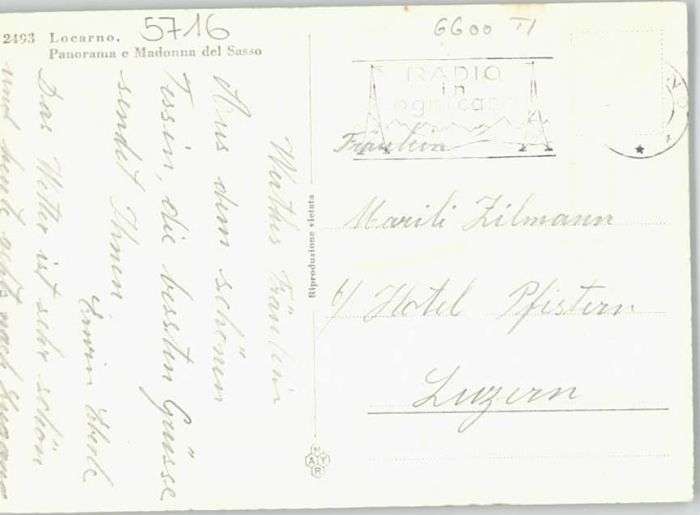 5716
6600 TI
2493 Locarno.
Panorama e Madonna del Sasso
RADIO
in
ogni casa
Werthes Fräulein
Aus dem schönen
Tessin, die bessten Grüsse
sendet Ihnen
Erwin Eberle
Das Wetter ist sehr schön
und heute gehts nach Lugano
Riproduzione vietata
Fräulein
Marili Zilmann
b/ Hotel Pfistern
Luzern